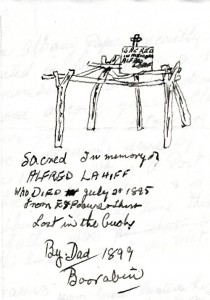 SACRED
in memory
Sacred In memory of
ALFRED LAHIFF
WHO DIED July 2ⁿ 1895
From Exposure & thirst
Lost in the bush
By Dad 1899
Boorabin